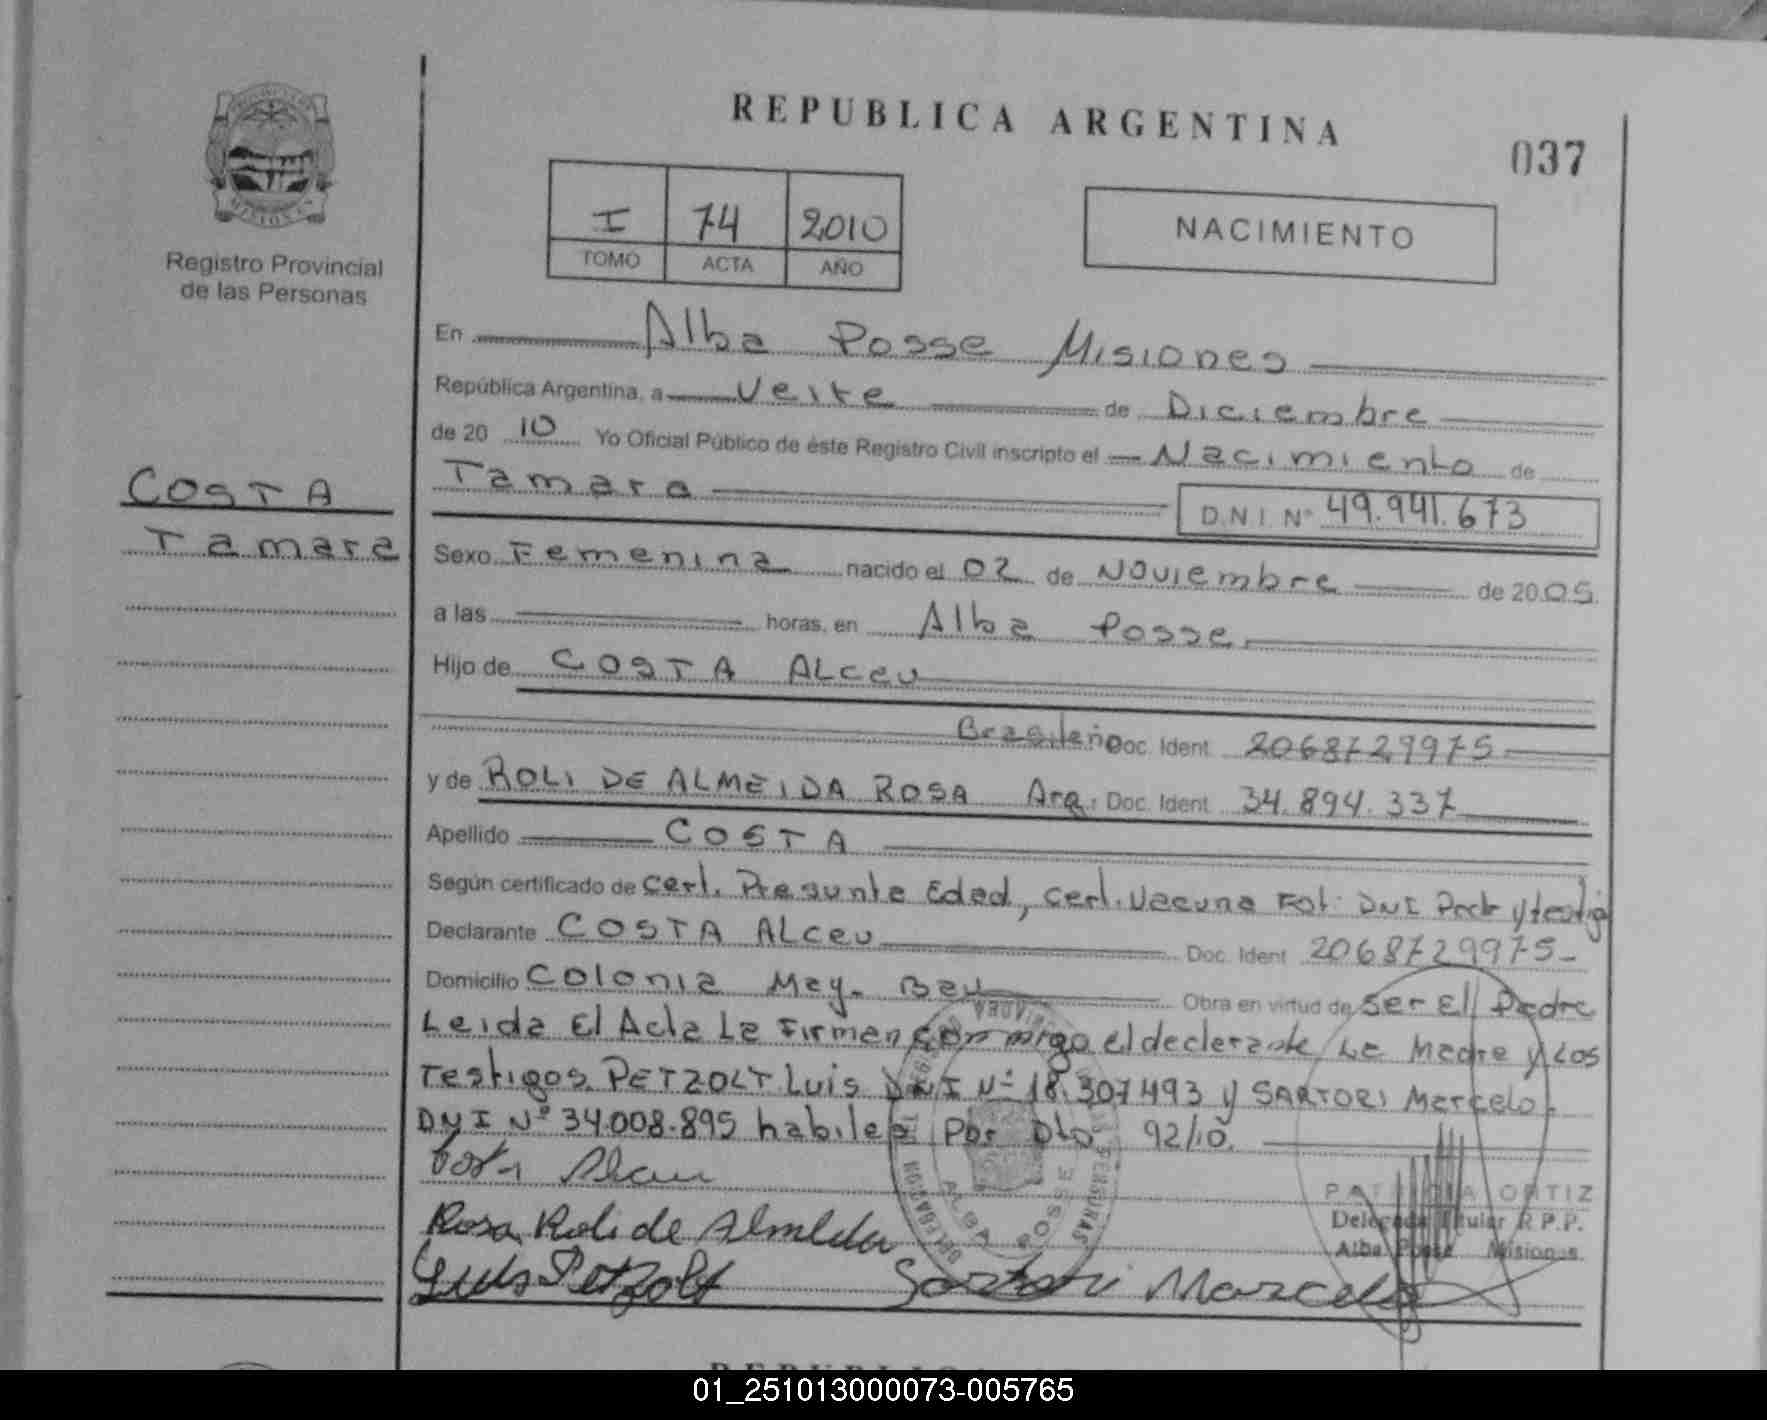 REPUBLICA ARGENTINA
037
I 74 2010
TOMO ACTA AÑO
NACIMIENTO
MISIONES
Registro Provincial
de las Personas
COSTA
Tamara
En Alba Posse Misiones
República Argentina, a Veite de Diciembre
de 20 10 Yo Oficial Público de éste Registro Civil inscripto el Nacimiento de
Tamara D.N.I. Nº 49.941.673
Sexo Femenina nacido el 02 de Noviembre de 2005
a las horas, en Alba Posse
Hijo de COSTA ALceu
Brasileño Doc. Ident. 2068729975
y de ROLI DE ALMEIDA ROSA Arg. Doc. Ident. 34.894.337
Apellido COSTA
Según certificado de Cert. Presunte Edad, Cert. Vacuna Fot. DNI y testig
Declarante COSTA ALceu Doc. Ident. 2068729975-
Domicilio Colonia May. Obra en virtud de Ser El Padre
Leida El Acta La Firman conmigo el declarante, La Madre y Los
Testigos PETZOLT Luis DNI Nº 18.307493 y SARTORI Marcelo.
DNI Nº 34.008.895 habiles Por Dto 92/10.
Rosa Roli de Almeida
Luis Petzolt Sartori Marcelo
PATRICIA ORTIZ
Delegada Titular R.P.P.
Alba Posse Misiones
01_251013000073-005765